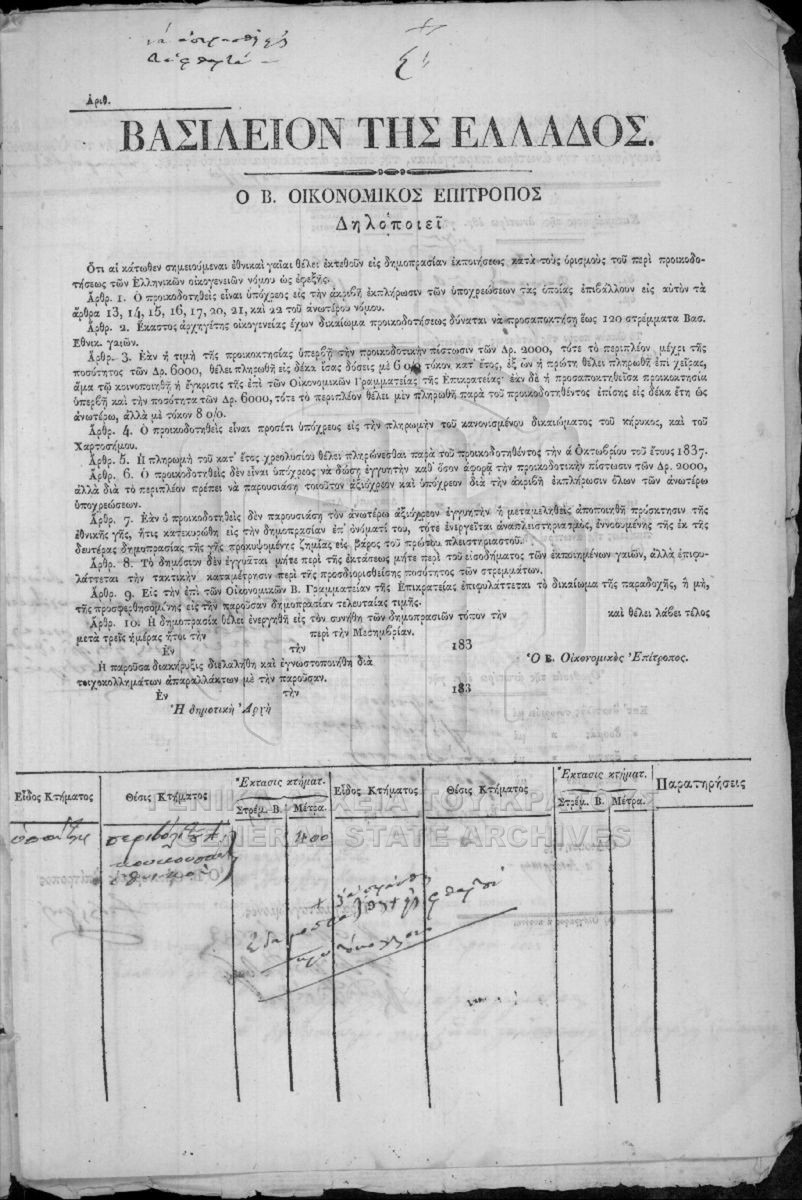 Ἀριθ.
ΒΑΣΙΛΕΙΟΝ ΤΗΣ ΕΛΛΑΔΟΣ.
Ο Β. ΟΙΚΟΝΟΜΙΚΟΣ ΕΠΙΤΡΟΠΟΣ
Δηλοποιεῖ
Ὅτι αἱ κάτωθεν σημειούμεναι ἐθνικαὶ γαῖαι θέλει ἐκτεθοῦν εἰς δημοπρασίαν ἐκποιήσεως κατὰ τοὺς ὁρισμοὺς τοῦ περὶ προικοδο-
τήσεως τῶν Ἑλληνικῶν οἰκογενειῶν νόμου ὡς ἐφεξῆς.
Ἄρθρ. 1. Ὁ προικοδοτηθεὶς εἶναι ὑπόχρεως εἰς τὴν ἀκριβῆ ἐκπλήρωσιν τῶν ὑποχρεώσεων τὰς ὁποίας ἐπιβάλλουν εἰς αὐτὸν τὰ
ἄρθρα 13, 14, 15, 16, 17, 20, 21, καὶ 22 τοῦ ἀνωτέρω νόμου.
Ἄρθρ. 2. Ἕκαστος ἀρχηγέτης οἰκογενείας ἔχων δικαίωμα προικοδοτήσεως δύναται νὰ προσαποκτήσῃ ἕως 120 στρέμματα Βασ.
Ἐθνικ. γαιῶν.
Ἄρθρ. 3. Ἐὰν ἡ τιμὴ τῆς προικοκτησίας ὑπερβῇ τὴν προικοδοτικὴν πίστωσιν τῶν Δρ. 2000, τότε τὸ περιπλέον μέχρι τῆς
ποσότητος τῶν Δρ. 6000, θέλει πληρωθῆ εἰς δέκα ἴσας δόσεις μὲ 6 0/0 τόκον κατ' ἔτος, ἐξ ὧν ἡ πρώτη θέλει πληρωθῆ ἐπὶ χεῖρας,
ἅμα τῷ κοινοποιηθῇ ἡ ἔγκρισις τῆς ἐπὶ τῶν Οἰκονομικῶν Γραμματείας τῆς Ἐπικρατείας· ἐὰν δὲ ἡ προσαποκτηθεῖσα προικοκτησία
ὑπερβῇ καὶ τὴν ποσότητα τῶν Δρ. 6000, τότε τὸ περιπλέον θέλει μὲν πληρωθῆ παρὰ τοῦ προικοδοτηθέντος ἐπίσης εἰς δέκα ἔτη ὡς
ἀνωτέρω, ἀλλὰ μὲ τόκον 8 0/0.
Ἄρθρ. 4. Ὁ προικοδοτηθεὶς εἶναι προσέτι ὑπόχρεως εἰς τὴν πληρωμὴν τοῦ κανονισμένου δικαιώματος τοῦ κήρυκος, καὶ τοῦ
Χαρτοσήμου.
Ἄρθρ. 5. Ἡ πληρωμὴ τοῦ κατ' ἔτος χρεολυσίου θέλει πληρώνεσθαι παρὰ τοῦ προικοδοτηθέντος τὴν ά Ὀκτωβρίου τοῦ ἔτους 1837.
Ἄρθρ. 6. Ὁ προικοδοτηθεὶς δὲν εἶναι ὑπόχρεως νὰ δώσῃ ἐγγυητὴν καθ' ὅσον ἀφορᾷ τὴν προικοδοτικὴν πίστωσιν τῶν Δρ. 2000,
ἀλλὰ διὰ τὸ περιπλέον πρέπει νὰ παρουσιάσῃ τοιοῦτον ἀξιόχρεον καὶ ὑπόχρεον διὰ τὴν ἀκριβῆ ἐκπλήρωσιν ὅλων τῶν ἀνωτέρω
ὑποχρεώσεων.
Ἄρθρ. 7. Ἐὰν ὁ προικοδοτηθεὶς δὲν παρουσιάσῃ τὸν ἀνωτέρω ἀξιόχρεον ἐγγυητὴν ἢ μεταμεληθεὶς ἀποποιηθῇ πρόσκτησιν τῆς
ἐθνικῆς γῆς, ἥτις κατεκυρώθη εἰς τὴν δημοπρασίαν ἐπ' ὀνόματί του, τότε ἐνεργεῖται ἀναπλειστηριασμὸς, ἐννοουμένης τῆς ἐκ τῆς
δευτέρας δημοπρασίας τῆς γῆς προκυψομένης ζημίας εἰς βάρος τοῦ πρώτου πλειστηριαστοῦ.
Ἄρθρ. 8. Τὸ δημόσιον δὲν ἐγγυᾶται μήτε περὶ τῆς ἐκτάσεως μήτε περὶ τοῦ εἰσοδήματος τῶν ἐκποιημένων γαιῶν, ἀλλὰ ἐπιφυ-
λάττεται τὴν τακτικὴν καταμέτρησιν περὶ τῆς προσδιορισθείσης ποσότητος τῶν στρεμμάτων.
Ἄρθρ. 9. Εἰς τὴν ἐπὶ τῶν Οἰκονομικῶν Β. Γραμματείαν τῆς Ἐπικρατείας ἐπιφυλάττεται τὸ δικαίωμα τῆς παραδοχῆς, ἢ μὴ,
τῆς προσφερθησομένης εἰς τὴν παροῦσαν δημοπρασίαν τελευταίας τιμῆς.
Ἄρθρ. 10. Ἡ δημοπρασία θέλει ἐνεργηθῆ εἰς τὸν συνήθη τῶν δημοπρασιῶν τόπον τὴν καὶ θέλει λάβει τέλος
μετὰ τρεῖς ἡμέρας ἤτοι τὴν περὶ τὴν Μεσημβρίαν.
Ἐν τὴν 183
Ὁ Β. Οἰκονομικὸς Ἐπίτροπος.
Ἡ παροῦσα διακήρυξις διελαλήθη καὶ ἐγνωστοποιήθη διὰ
τοιχοκολλημάτων ἀπαραλλάκτων μὲ τὴν παροῦσαν.
Ἐν τὴν 183
Ἡ δημοτικὴ Ἀρχὴ
Εἶδος Κτήματος Θέσις Κτήματος Ἔκτασις κτήματ. Εἶδος Κτήματος Θέσις Κτήματος Ἔκτασις κτήματ. Παρατηρήσεις
Στρέμ. Β. Μέτρα. Στρέμ. Β. Μέτρα.
ΓΕΝΙΚΑ ΑΡΧΕΙΑ ΤΟΥ ΚΡΑΤΟΥΣ
GENERAL STATE ARCHIVES
400